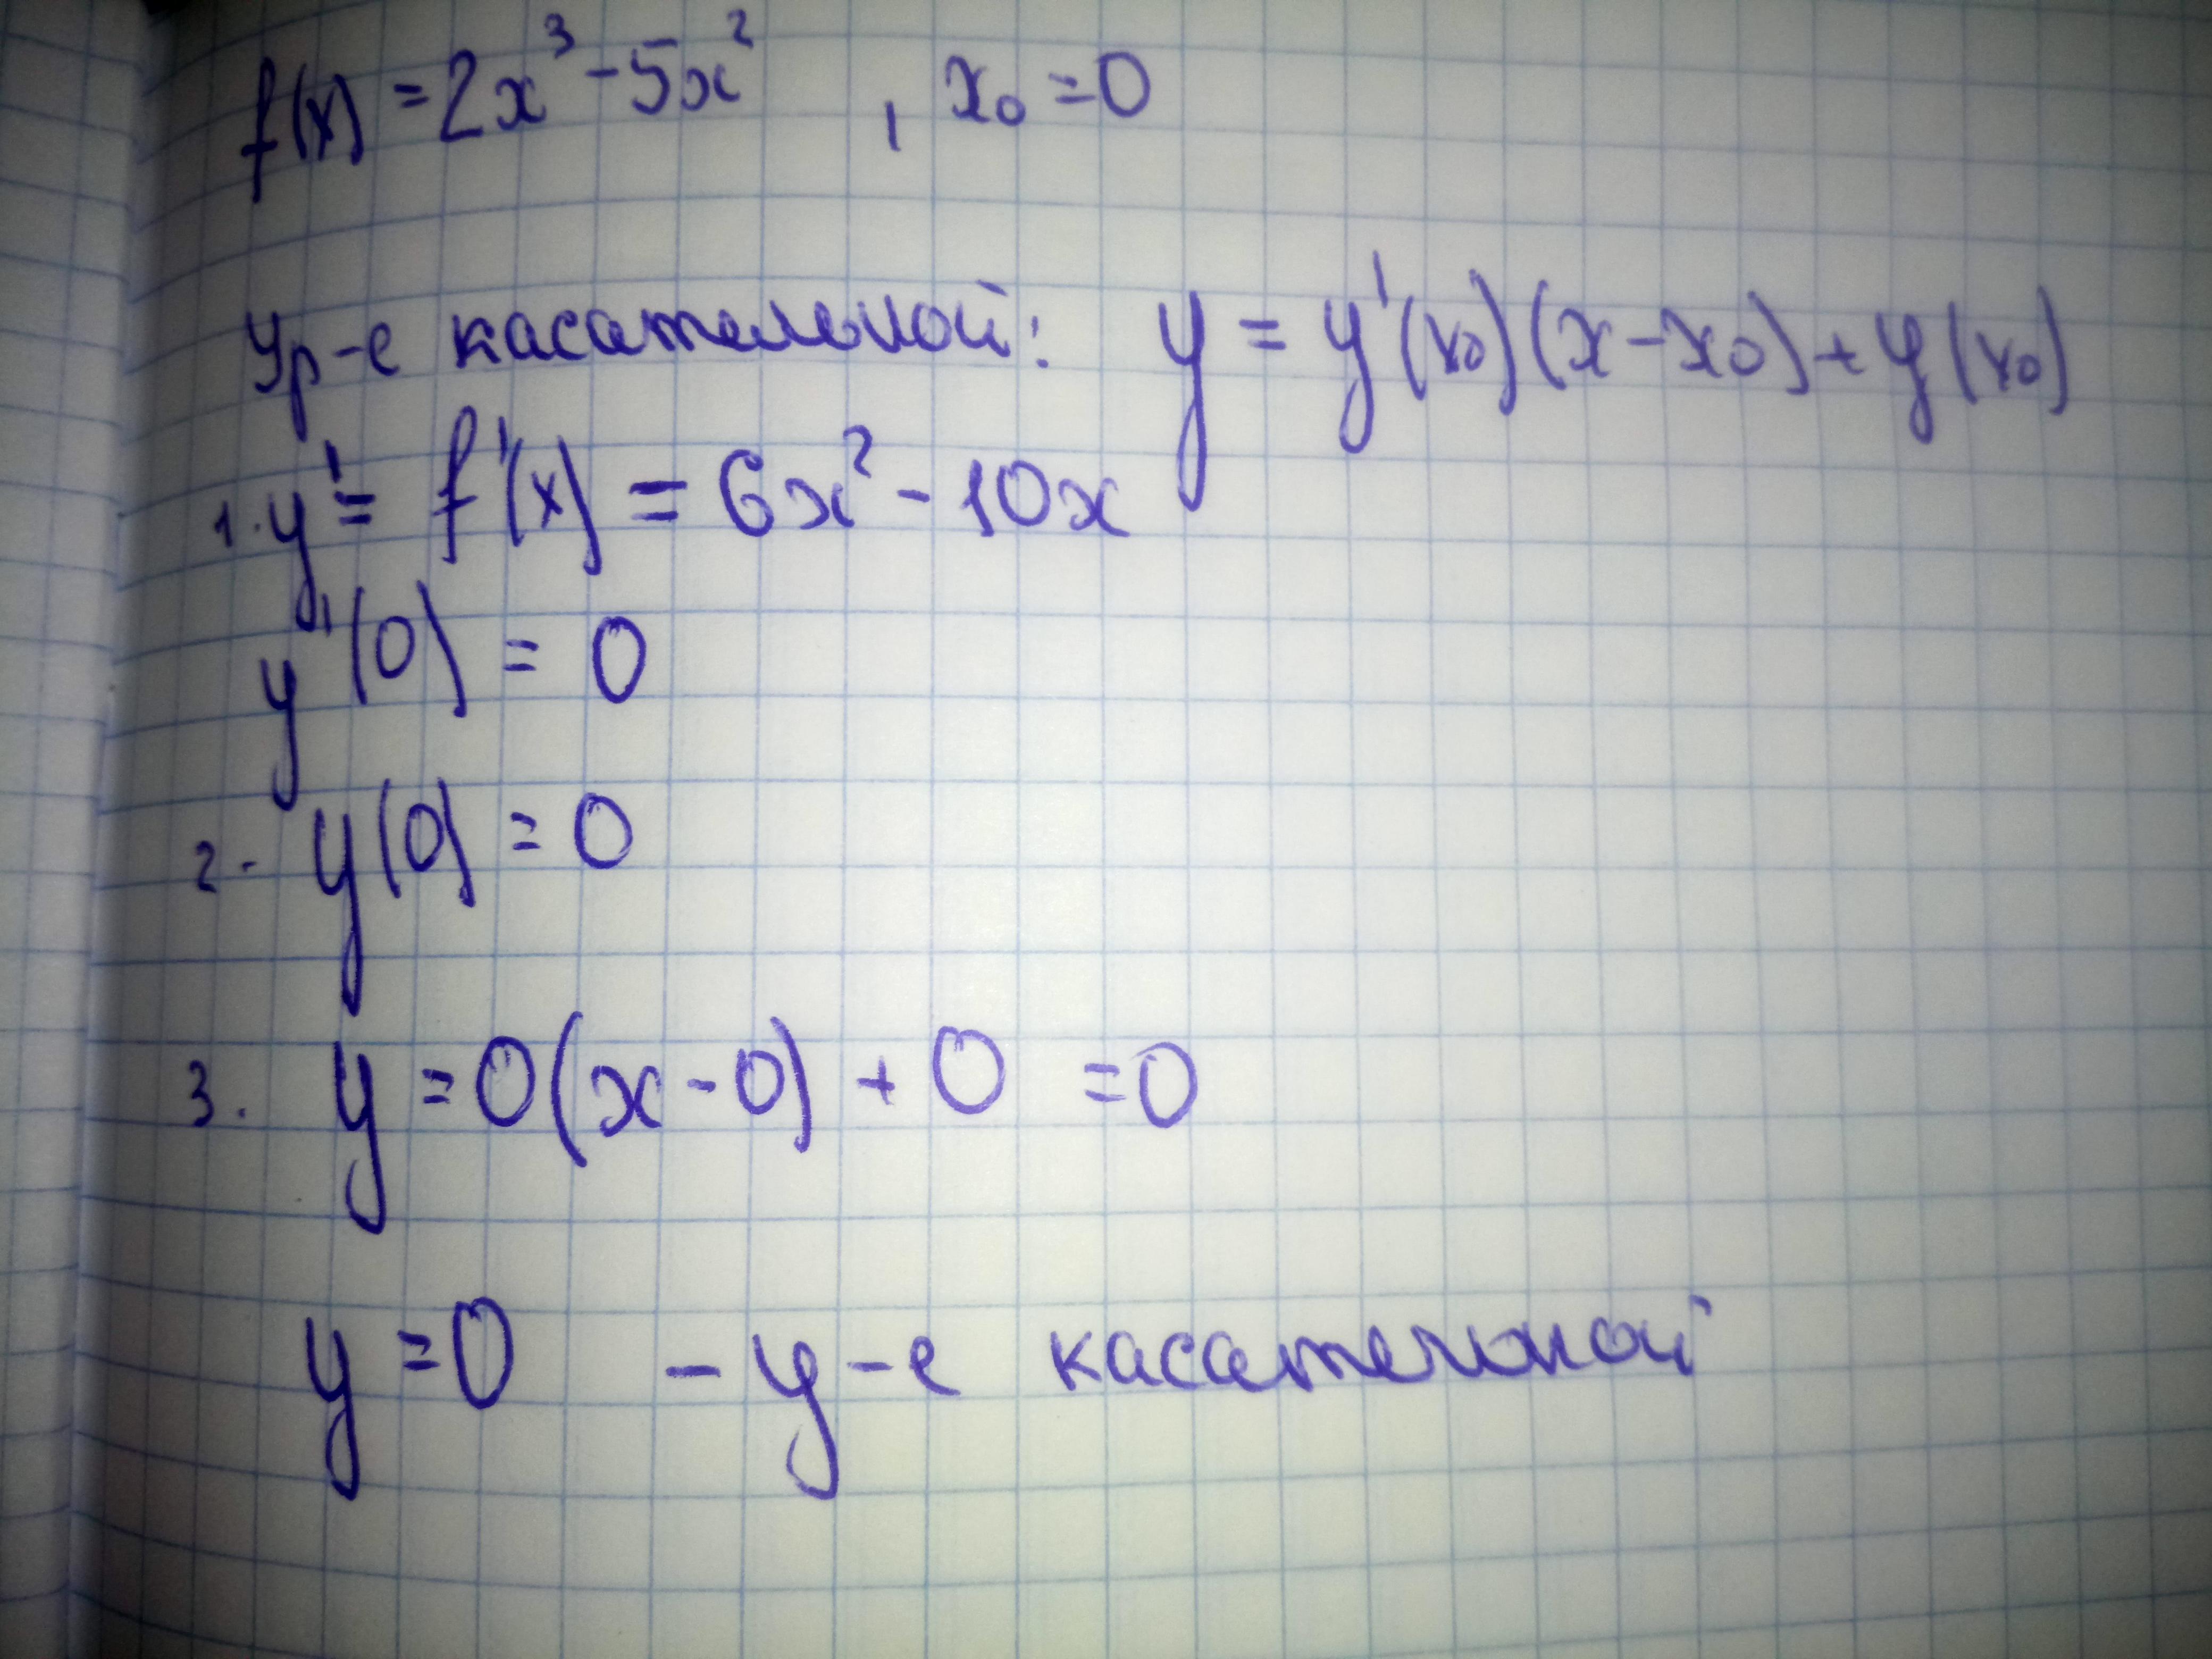 f(x) = 2x³ - 5x² , x₀ = 0
Ур-е касательной: y = y'(x₀)(x - x₀) + y(x₀)
1. y' = f'(x) = 6x² - 10x
y'(0) = 0
2. y(0) = 0
3. y = 0(x - 0) + 0 = 0
y = 0 - у-е касательной